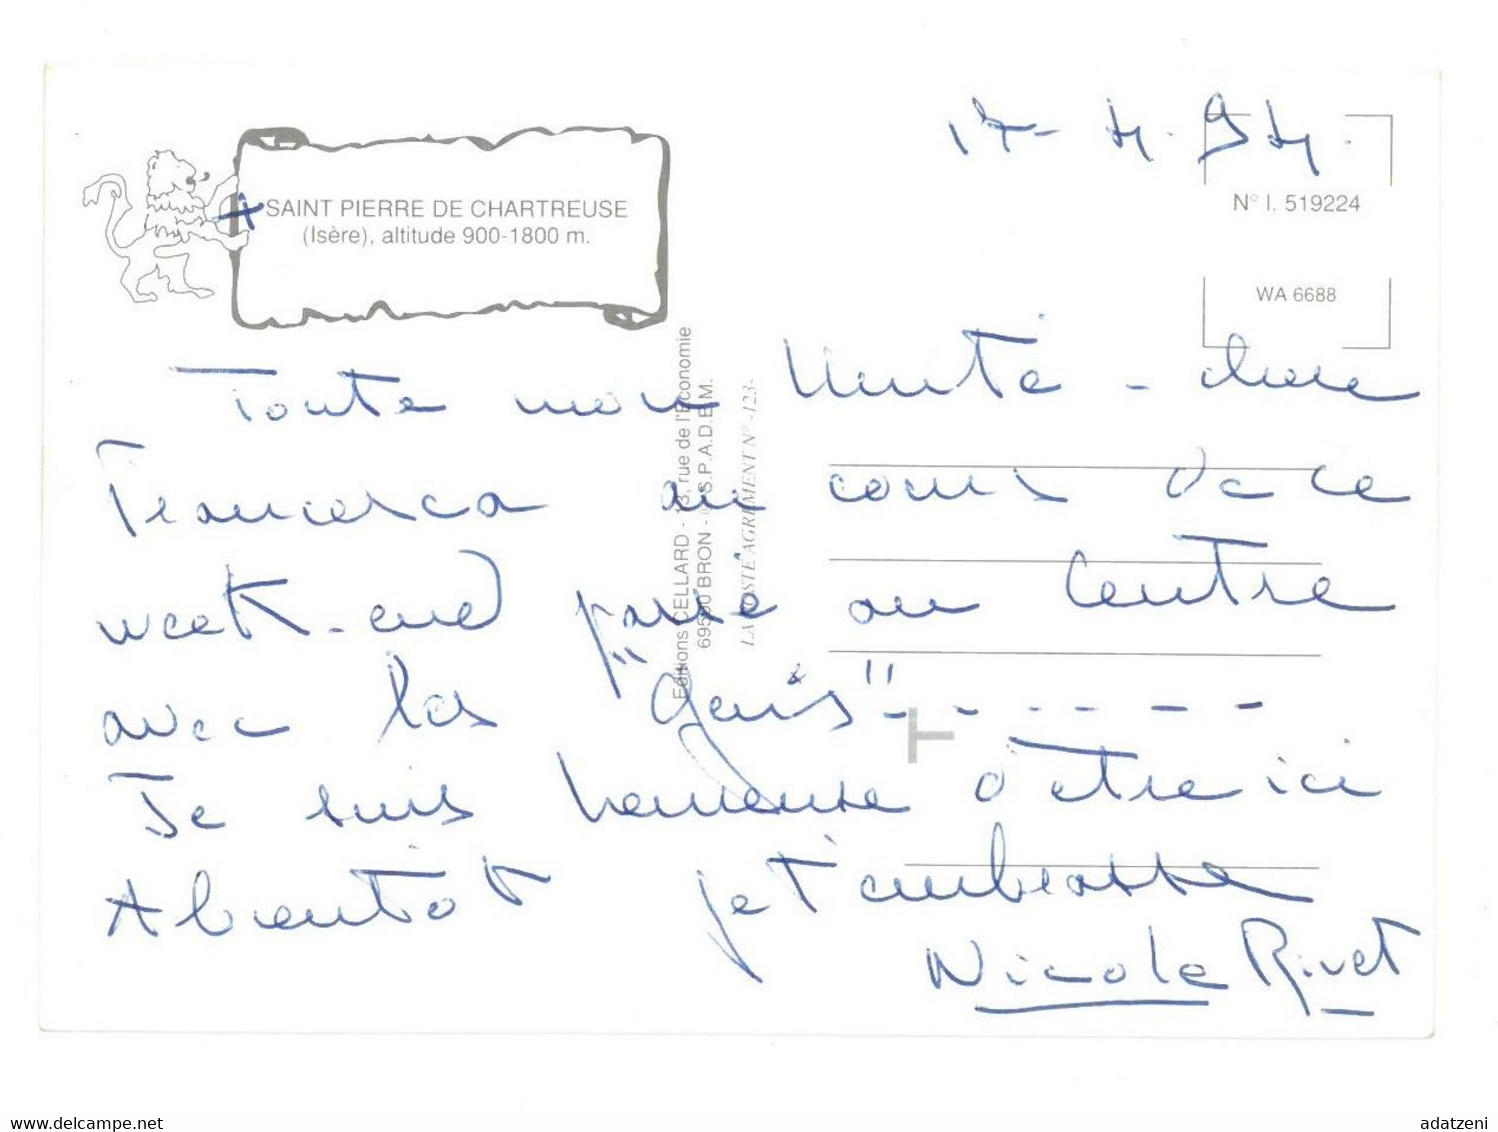 17-4.94.
N° I. 519224
WA 6688
+ SAINT PIERRE DE CHARTREUSE
(Isère), altitude 900-1800 m.
Editions CELLARD - rue de l'Economie
BRON - S.P.A.D.E.M.
LA POSTE AGREMENT N° -123-
Toute mon Unité - chere
Francesca au cours de ce
week-end passé au Centre
avec les "Gens" - - - - - -
Je suis heureuse d'etre ici
A bientôt je t'embrasse
Nicole Rivet
adatzeni
www.delcampe.net